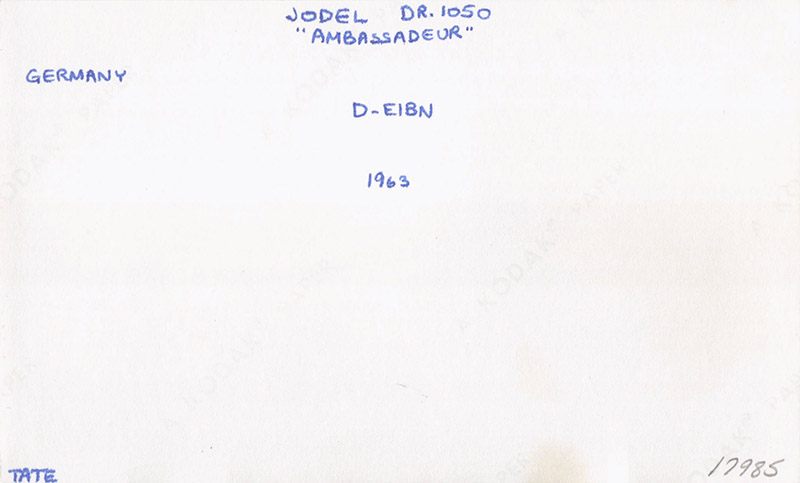 JODEL DR.1050
"AMBASSADEUR"
GERMANY
D-EIBN
1963
TATE
17985